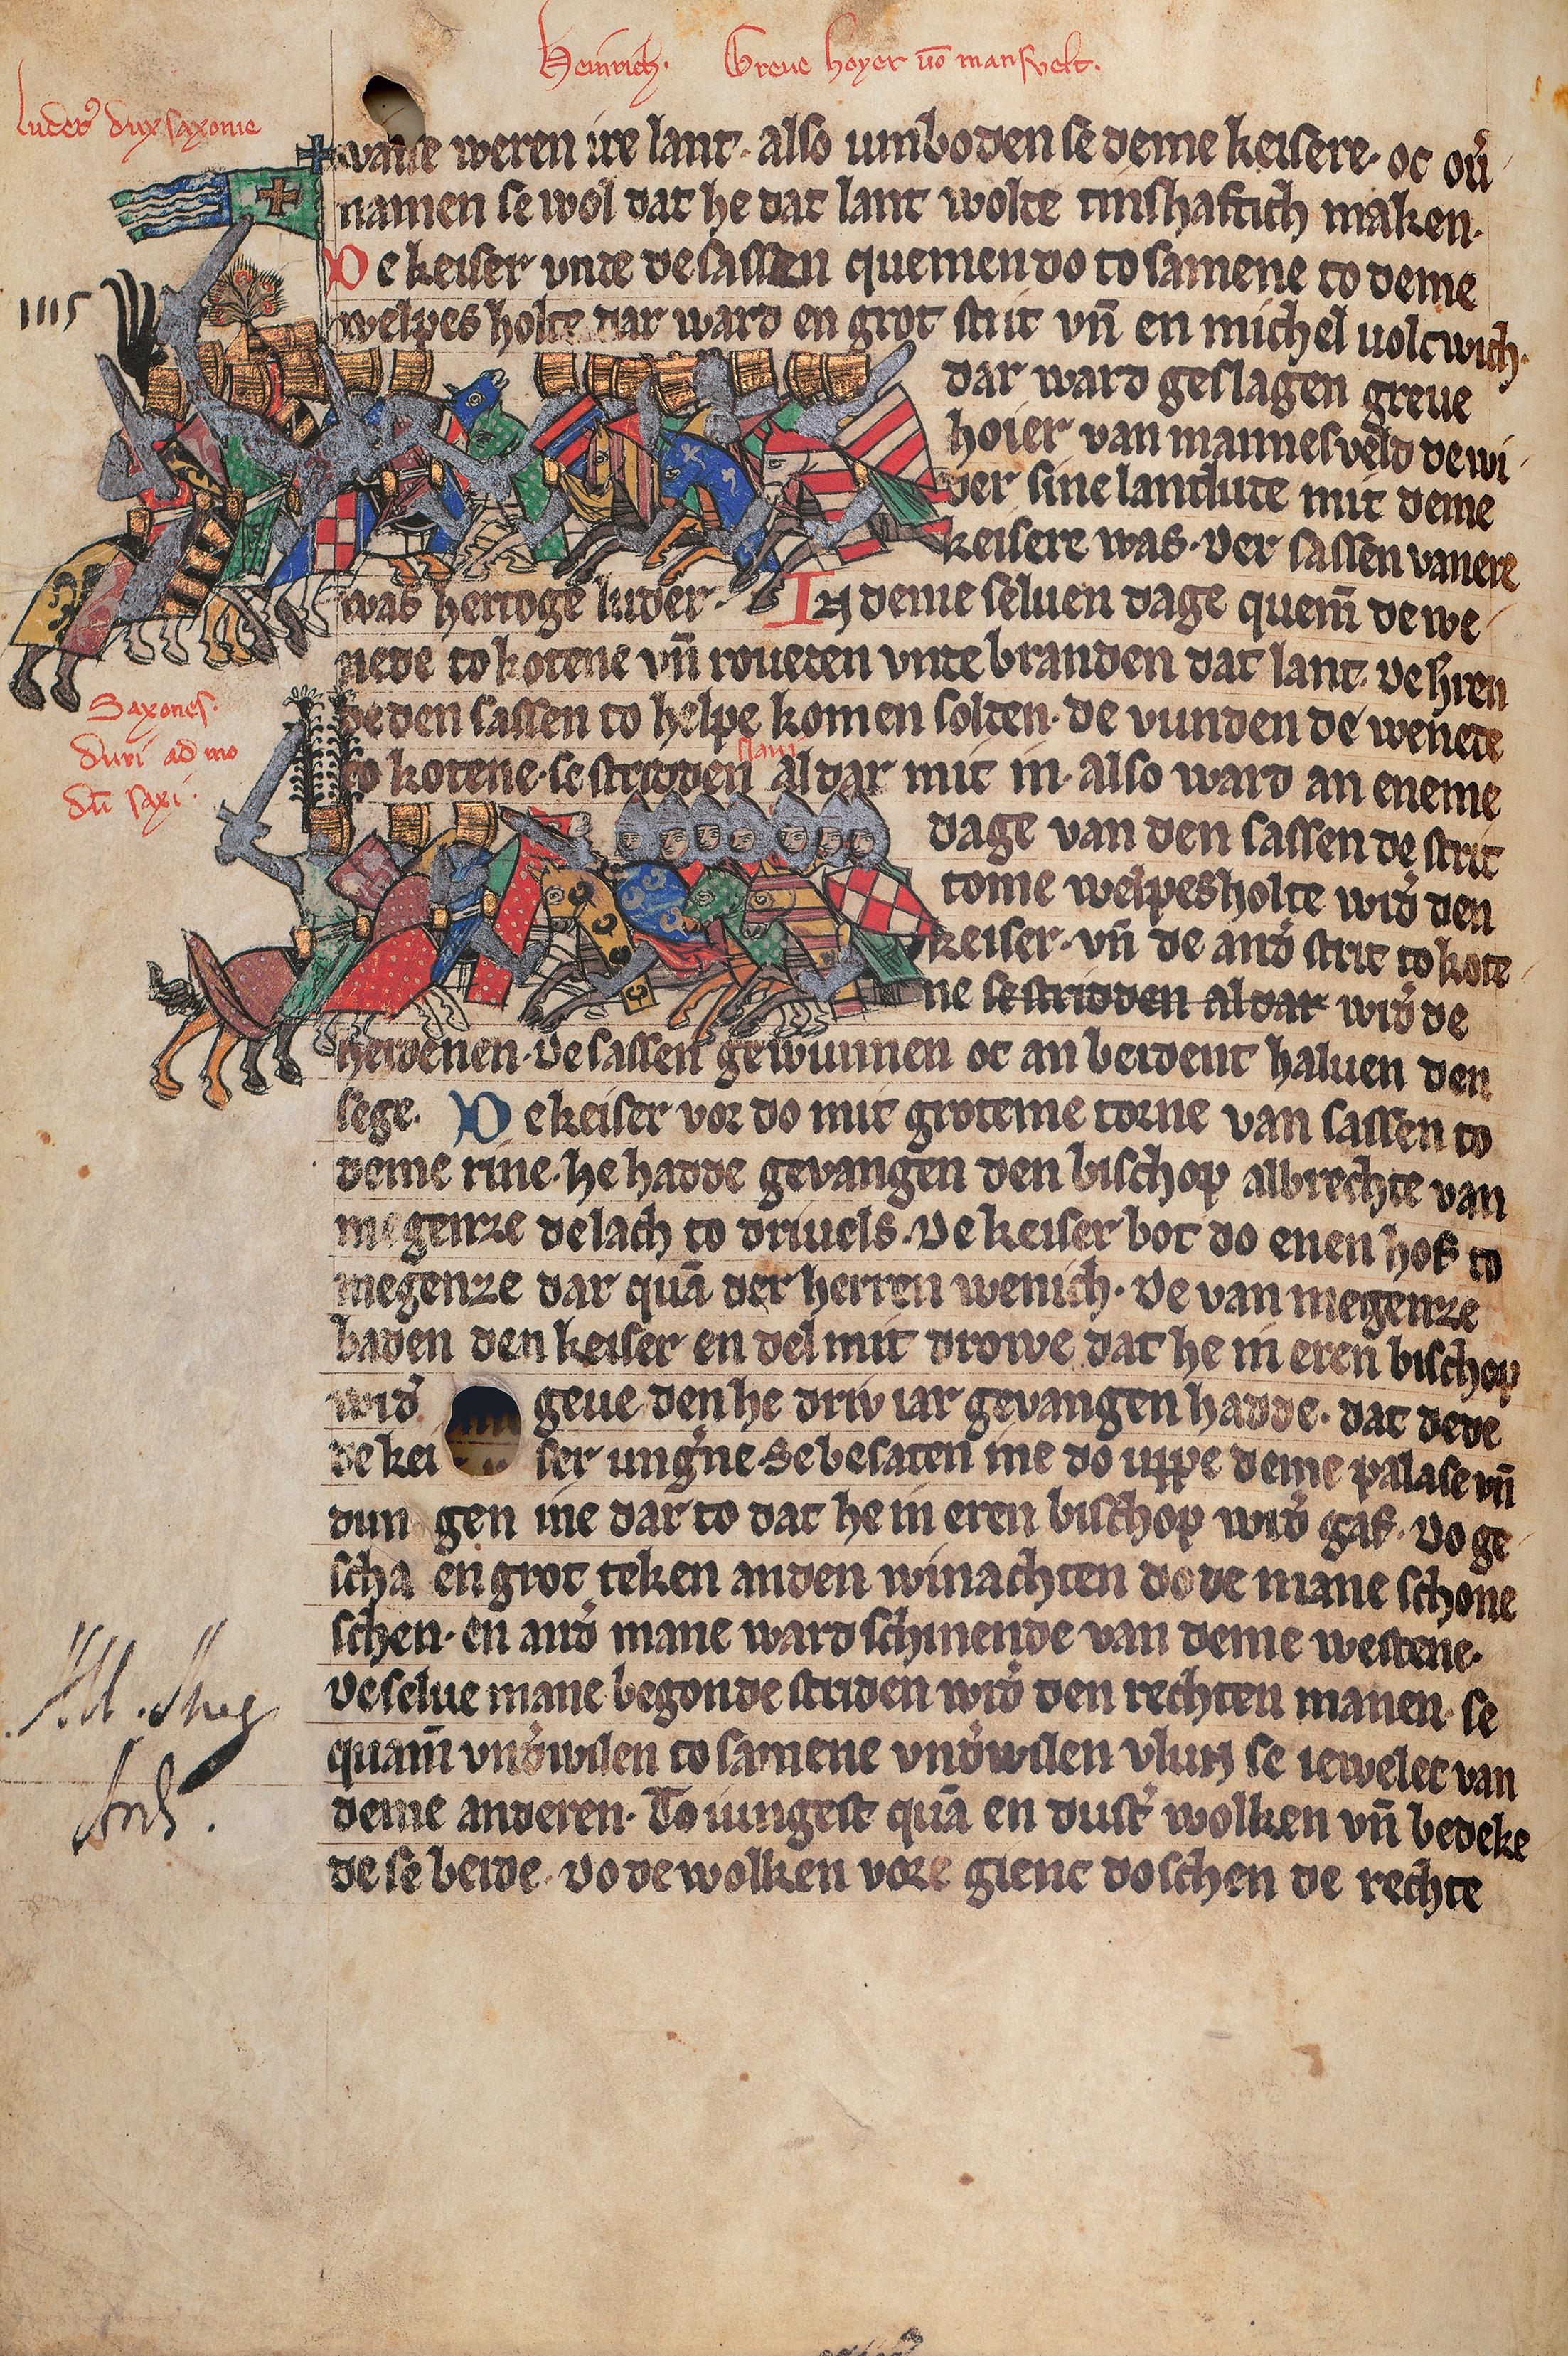 Heinrich. Greue hoyer uō mansvelt.
luder᷒ dux saxonie
wane weren ire lant. also umboden se deme keisere. oc ou͛
namen se wol dat he dat lant wolte tinshaftich maken.
De keiser vnte de sassen quemen do to samene to deme
welpes holte. dar ward en grot strit vn̄ en michel uolcwich.
1115
dar ward geslagen greue
hoier van mannesveld de wi
der sine lantlute mit deme
keisere was. Der sassen vanere
was hertoge luder. In deme seluen dage quem̄ de we
nede to kotene vn̄ roueten vnte branden dat lant. De h͛ren
Saxones.
duri ad mo
dū saxi.
de den sassen to helpe komen solten. de vunden de wenete
slaui
to kotene. se stridden al dar mit in. also ward an eneme
dage van den sassen de strit
tome welpesholte wid͛ den
keiser. vn̄ de and͛ strit to kote
ne se stridden al dar wid͛ de
heidenen. De sassen gewunnen oc an beident haluen den
sege. De keiser vor do mit groteme torne van sassen to
deme rine. he hadde gevangen den bischop albrechte van
megenze de lach to driuels. De keiser bot do enen hof to
megenze dar quā der herren wenich. De van megenze
baden den keiser en del mit drowe dat he in eren bischop
wid͛ geue den he driv iar gevangen hadde. dat dede
de kei ser ung͛ne. Se besaten ine do uppe deme palase vn̄
dun gen ine dar to dat he in eren bischop wid͛ gaf. Do ge
scha en grot teken an den winachten do de mane schone
schen. en and͛ mane ward schinende van deme westene.
De selue mane begonde striden wid͛ den rechten manen. se
quam̄ vnd͛wilen to samene vnd͛wilen vlun se iewelec van
deme anderen. To iungest quā en dust͛ wolken vn̄ bedeke
de se beide. Do de wolken vore gienc do schen de rechte